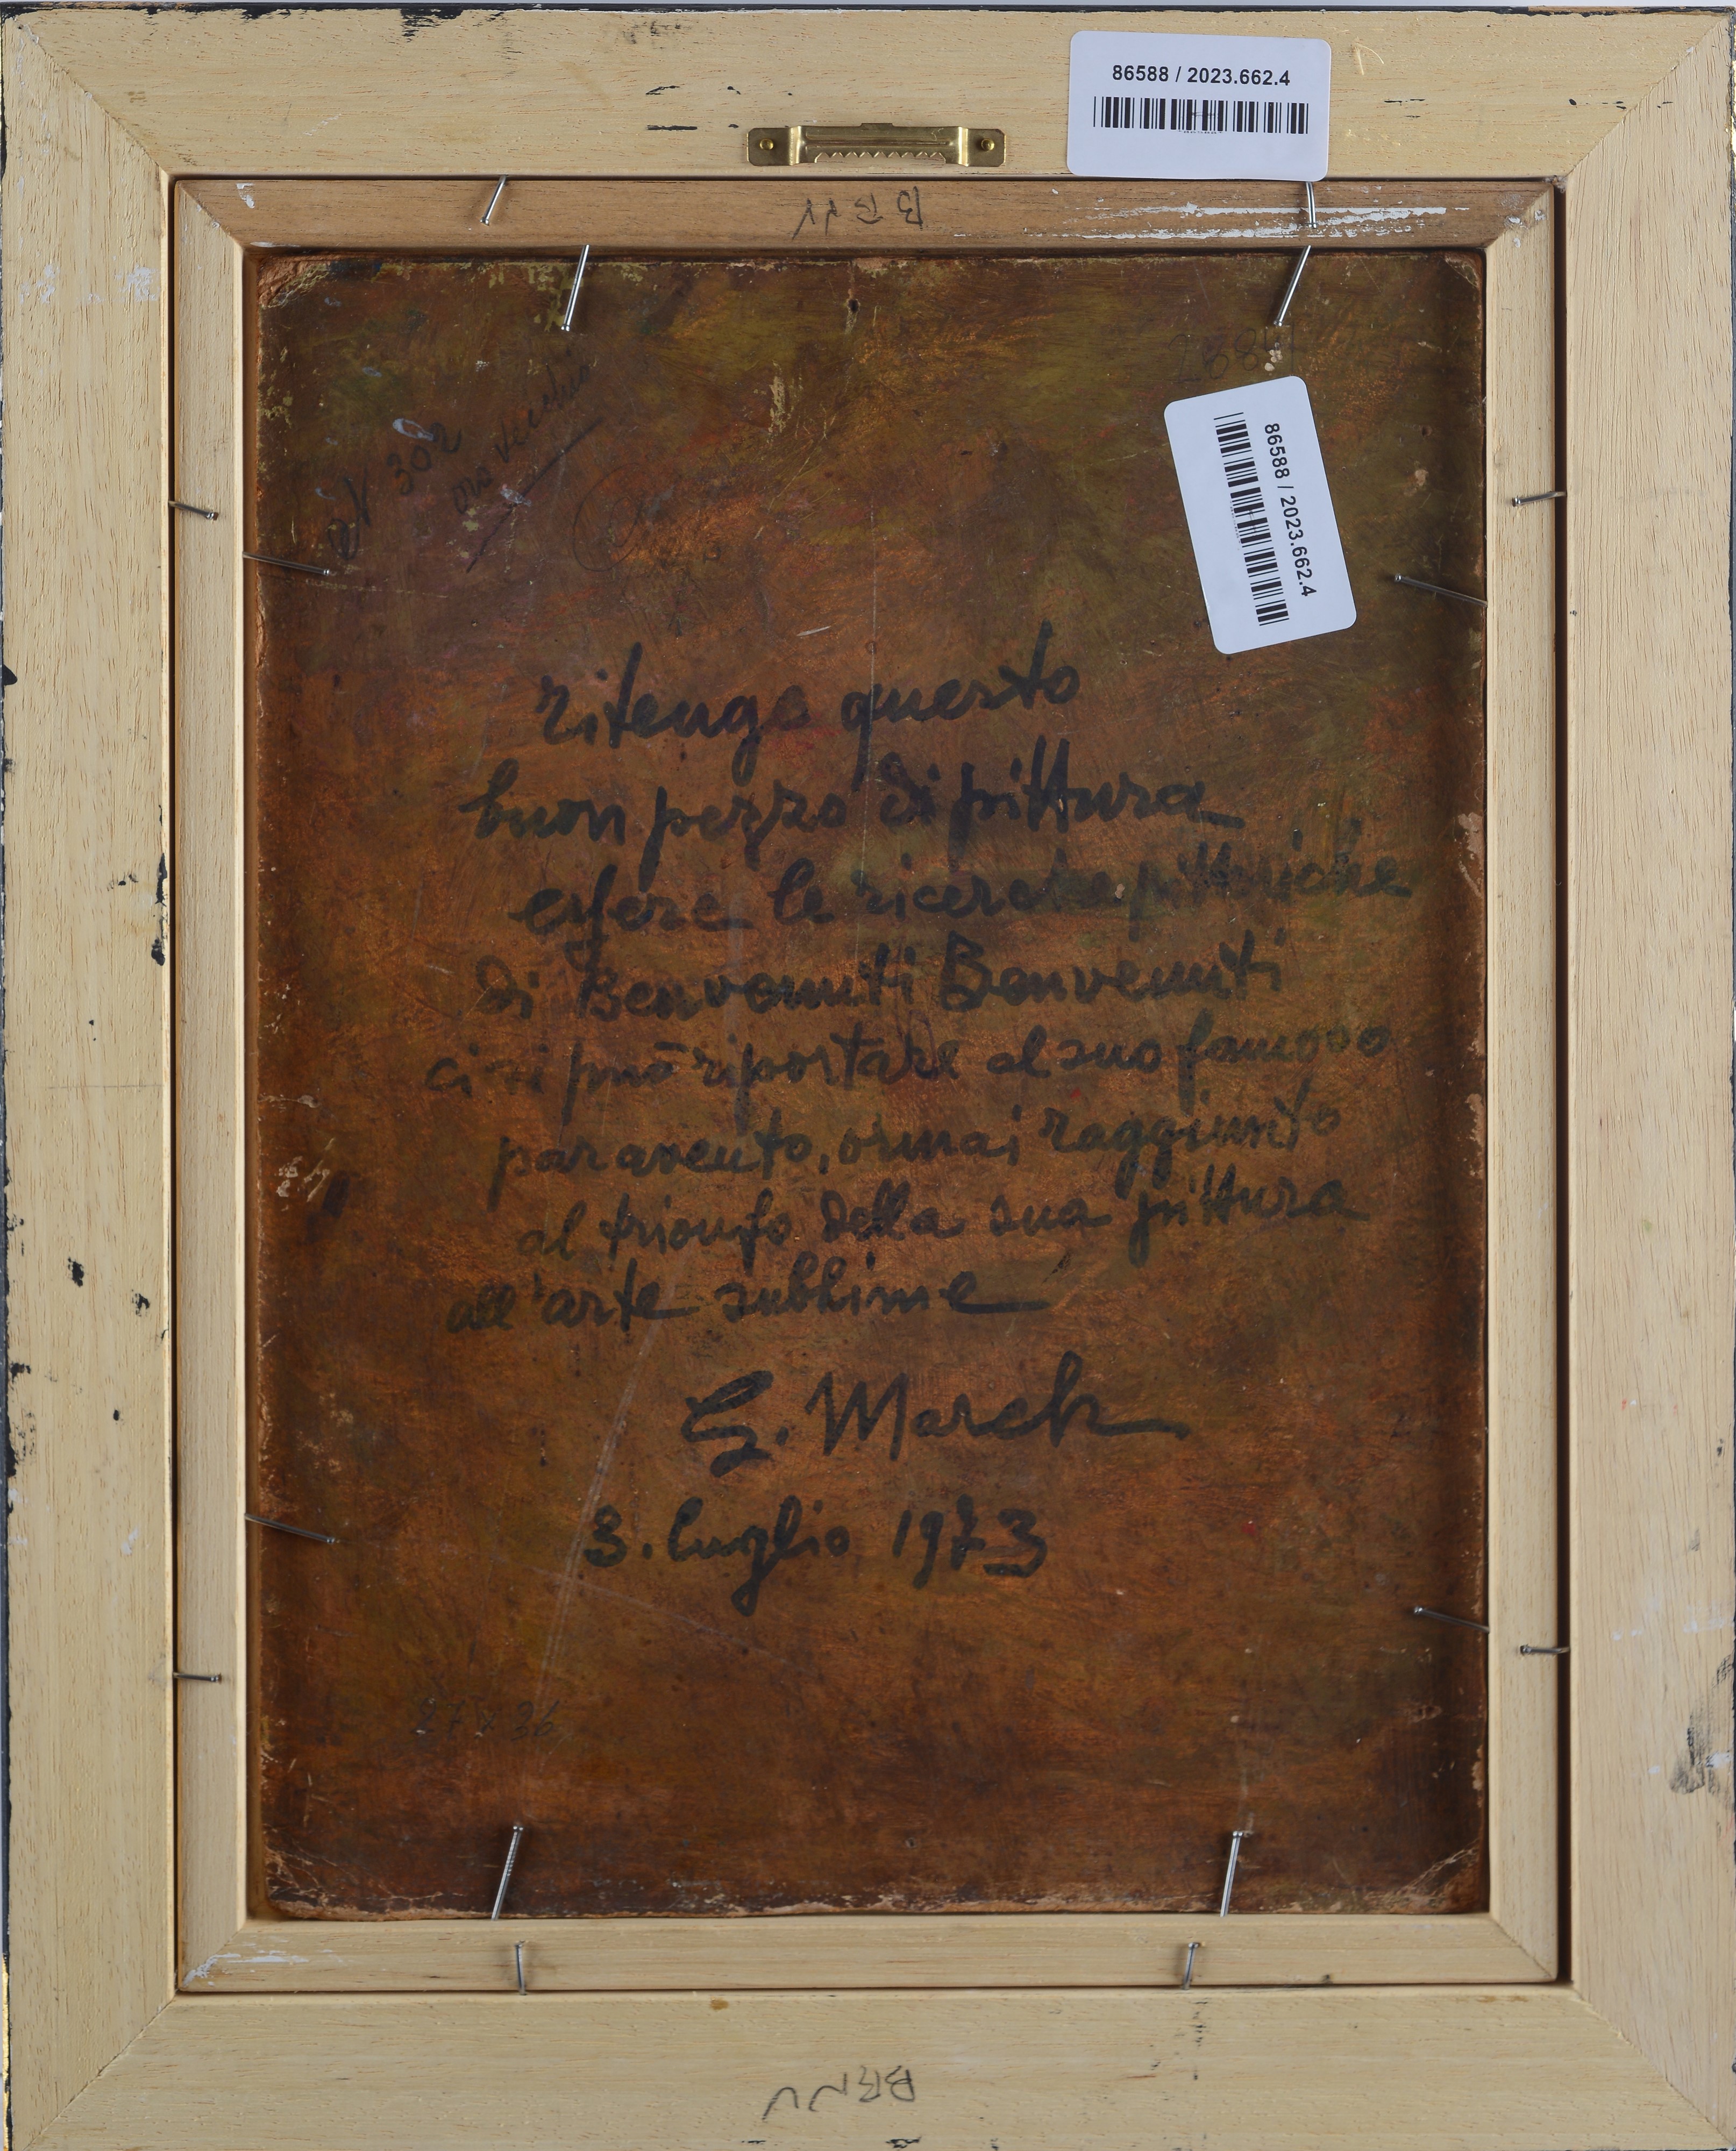 86588 / 2023.662.4
BENV
86588 / 2023.662.4
302
ritengo questo
buon pezzo di pittura
essere le ricerche pittoriche
di Benvenuti Benvenuti
ci si può riportare al suo famoso
paravento, ormai raggiunto
al trionfo della sua pittura
all'arte sublime
G. March
3. luglio 1973
27 x 36
BENV